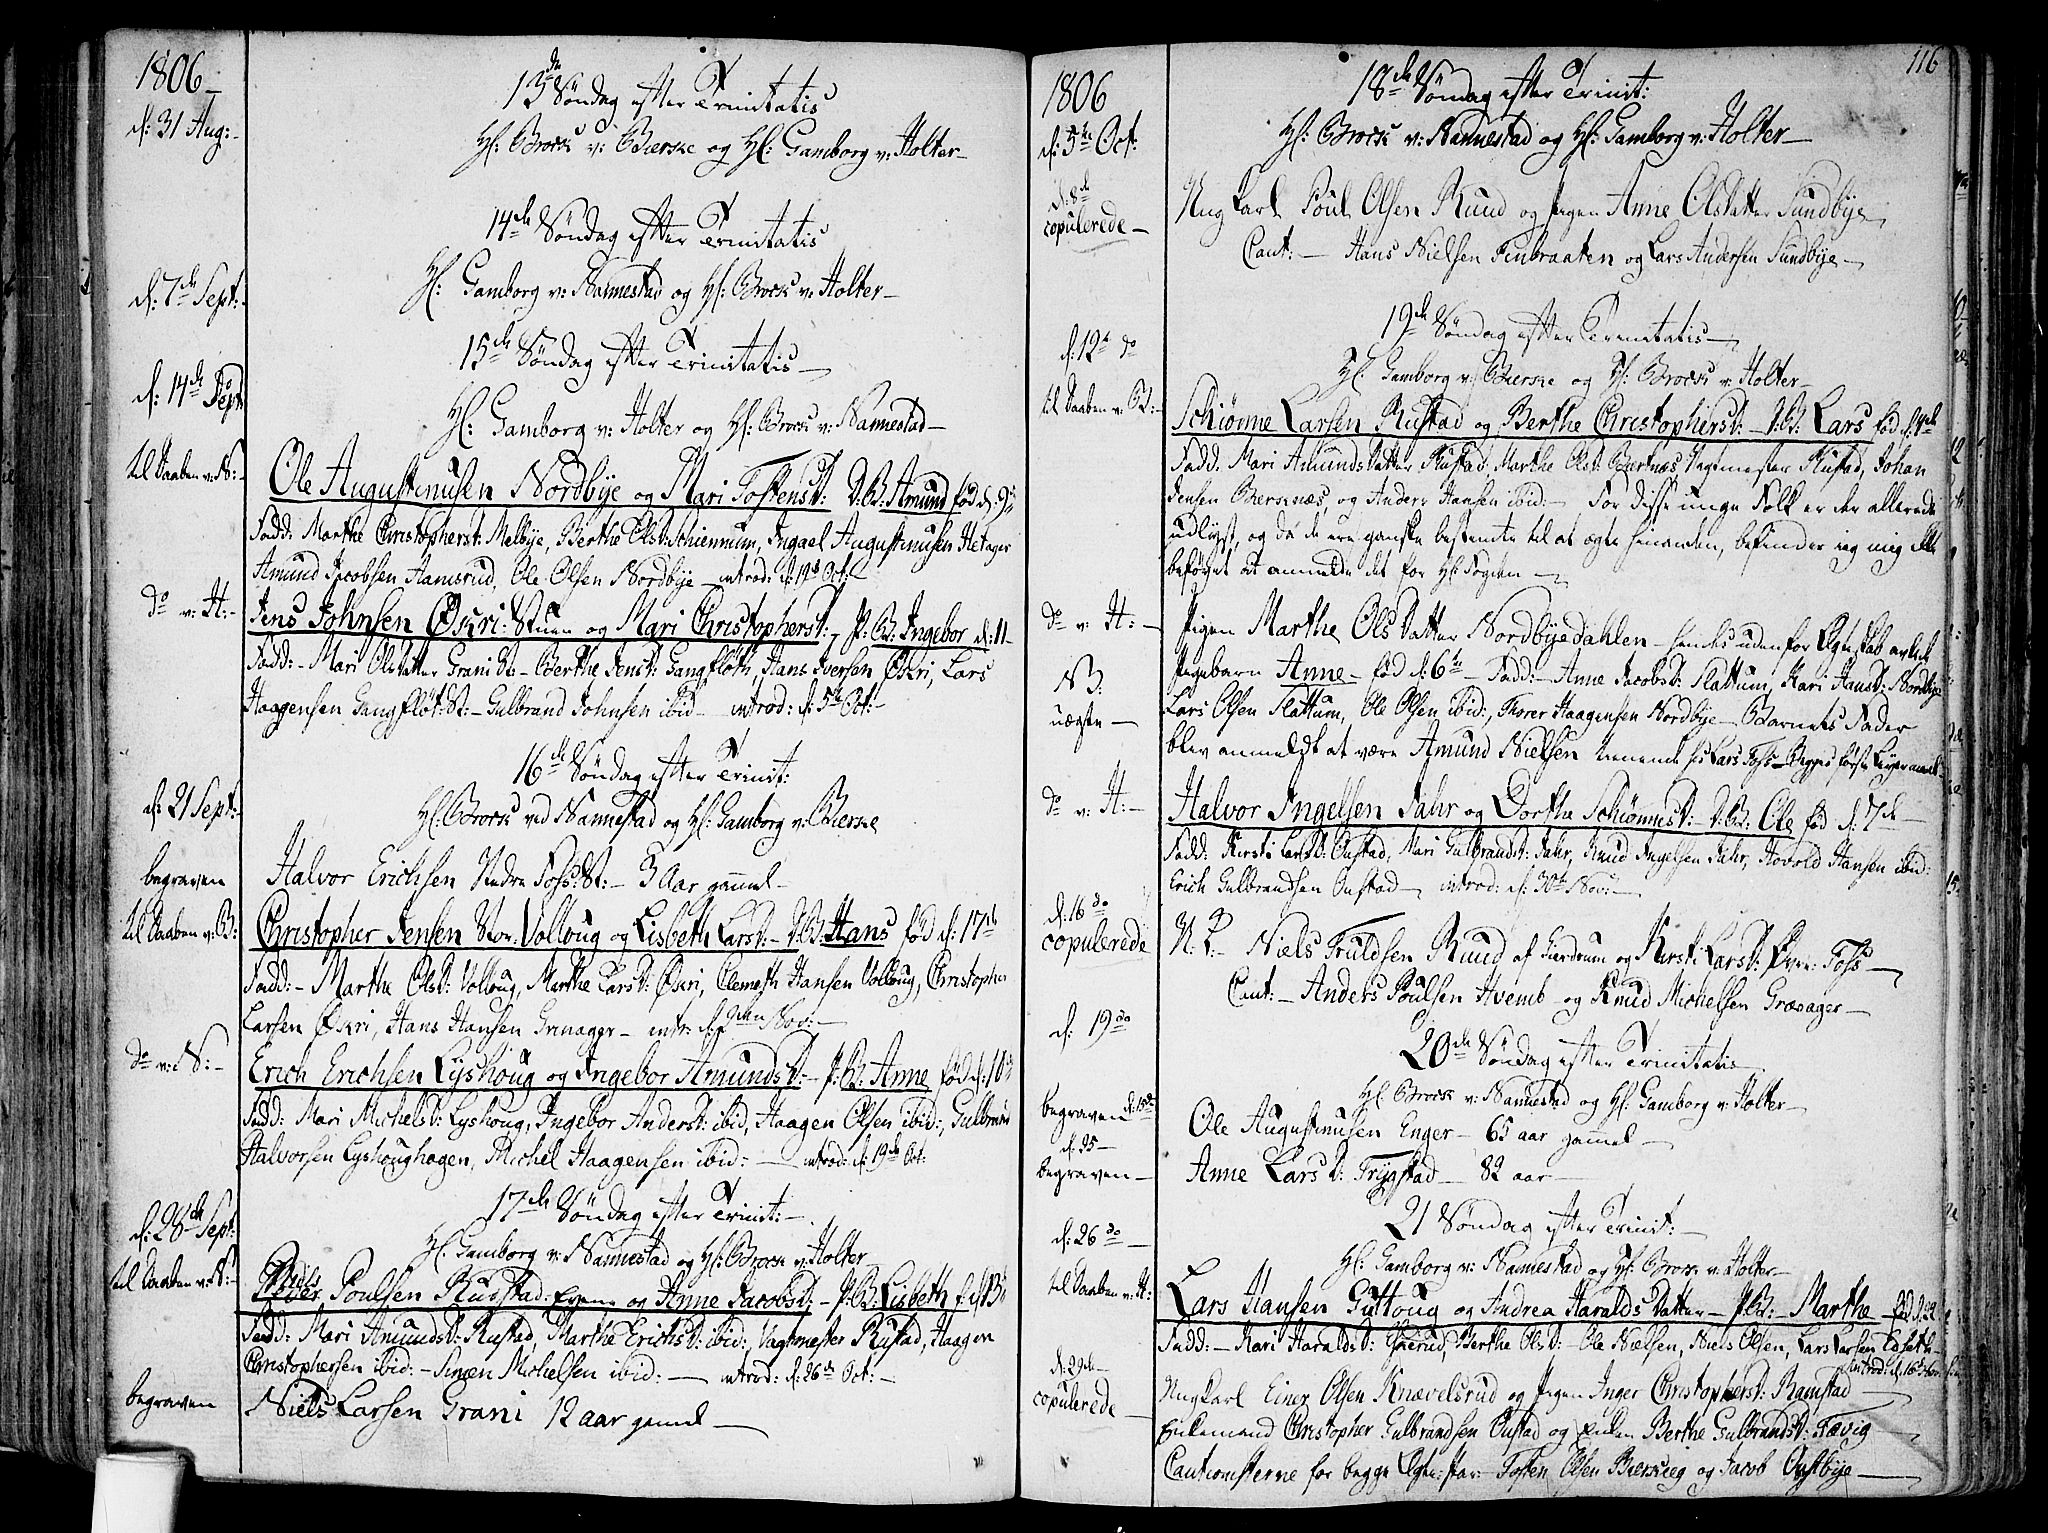 1806
13de Søndag efter Trinitatis
d: 31 Aug:
Hl: Brock v: Bierke og Hl: Gamborg v: Holter
14de Søndag efter Trinitatis
d: 7de Sept:
Hl: Gamborg v: Nannestad og Hl: Brock v: Holter
15de Søndag efter Trinitatis
d: 14de Sept
Hl: Gamborg v: Holter og Hl: Brock v: Nannestad
til Daaben v: N:
Ole Augustinusen Nordbye og Mari Tostensd: D:B: Amund fød d: 9de
Fadd: Marthe Christophersd: Melbye, Berthe Olsd: Schiennum, Ingael Augustinusen Hetager
Amund Jacobsen Hamsrud, Ole Olsen Nordbye introd: d: 19de Oct:
do v: H:
Jens Johnsen Øskri: Stuen og Mari Christophersd: P:B: Ingebor d: 11
Fadd: Mari Olsdatter Grani St: Berthe Jensd: Gangfløth, Hans Iversen Øskri, Lars
Haagensen Gangfløt: St: Gulbrand Johnsen ibid introd: d: 5te Oct:
16de Søndag efter Trinit:
d: 21 Sept:
Hl: Brock ved Nannestad og Hl: Gamborg v: Bierke
begraven
Halvor Erichsen Nedre Foss: St: 3 Aar gammel
til Daaben v: B:
Christopher Jensen Stor: Volloug og Lisbeth Larsd: D:B: Hans fød d: 17de
Fadd: Marthe Olsd: Volloug, Marthe Larsd: Øskri, Clemeth Hansen Volloug, Christopher
Larsen Øskri, Hans Hansen Grinager intr: d: 9den Nov:
do v: N:
Erich Erichsen Lyshoug og Ingebor Amundsd: P:B: Anne fød d: 10de
Fadd: Mari Michelsd: Lyshoug, Ingebor Andersd: ibid, Haagen Olsen ibid:, Gulbrand
Halvorsen Lyshoughagen, Michel Haagensen ibid: introd: d: 19de Oct:
17de Søndag efter Trinit:
d: 28de Sept:
Hl: Gamborg v: Nannestad og Hl: Brock v: Holter
til Daaben v: N:
Peder Poulsen Rustad: og Anne Jacobsd: P:B: Lisbeth
Fadd: Mari Amundsd: Rustad, Marthe Erichsd: ibid:, Vagtmester Rustad, Haagen
Christophersen ibid: Simen Michelsen ibid: introd: d: 26de Oct:
begraven
Niels Larsen Grani 12 aar gammel
116
1806
18de Søndag efter Trinit:
d: 5te Oct:
Hl: Brock v: Nannestad og Hl: Gamborg v: Holter
d: 8de
copulerede
Ung Karl Poul Olsen Ruud og Pigen Anne Olsdatter Sundbye
Caut: Hans Nielsen Finbraaten og Lars Andersen Sundbye
19de Søndag efter Trinitatis
d: 12te do
Hl: Gamborg v: Bierke og Hl: Brock v: Holter
til Daaben v: B:
Schiønne Larsen Rustad og Berthe Christophersd: D:B: Lars fød d:
Fadd: Mari Amundsdatter Rustad, Marthe Olsd: Biernæs, Vagtmester Rustad, Johan
Jensen Bierknæs, og Anders Hansen ibid: For disse unge Folk er der allerede
udlyst, og da de ere ganske bestemte til at ægte hinanden, befinder jeg mig ikke
beføyet at anmelde det for Hl: Fogden
do v: H:
Pigen Marthe Olsdatter Nordbyedahlen hendes uden for Ægteskab avlede
NB:
uægte
Pigebarn Anne fød d: 6te Fadd: Anne Jacobsd: Slattum, Kari Hansd: Nordbye
Lars Olsen Slattum, Ole Olsen ibid:, Thorer Haagensen Nordbye Barnets Fader
blev anmeldt at være Amund Nielsen tienende hos Lars Foss Begges første Leyermaal
do v: H:
Halvor Ingelsen Jahr og Dorthe Schiønnesd: D:B: Ole fød d: 7de
Fadd: Kirsti Larsd: Onstad, Mari Gulbrandsd: Jahr, Knud Ingelsen Jahr, Hovold Hansen ibid:
Erich Gulbrandsen Onstad introd: d: 30te Nov:
d: 16 do
copulerede
Niels Truldsen Ruud af Gierdrum og Kirsti Larsd: Øvre: Foss
Caut: Anders Poulsen Hvemb og Knud Michelsen Græsager
20de Søndag efter Trinitatis
d: 19 do
Hl: Brock v: Nannestad og Hl: Gamborg v: Holter
begraven d: 15de
Ole Augustinusen Enger 65 aar gamel
d: 25
begraven
Anne Larsd: Trygstad 82 aar
21 Søndag efter Trinit:
d: 26 do
Hl: Gamborg v: Nannestad og Hl: Brock v: Holter
til Daaben v: H:
Lars Hansen Guttoug og Andrea Haralds datter P:B: Marthe fød d: 22
Fadd: Kari Haraldsd: Berthe Olsd: Ole Nielsen, Niels Olsen, Lars Larsen
introd: d: 16de Nov:
d: 29de
copulerede
Ungkarl Einer Olsen Knævelsrud og Pigen Inger Christophersd: Ramstad
Enkemand Christopher Gulbrandsen Onstad og Enken Berthe Gulbrandsd: Tævig
Cautionisterne for begge Ægte: Par: Tosten Olsen Bierkeeg og Jacob Østbye